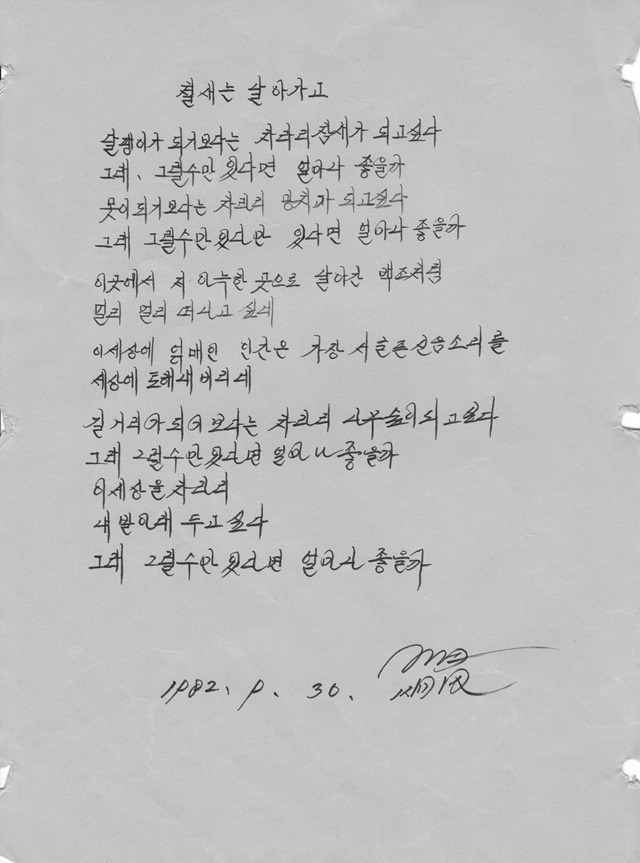 철새는 날아가고
달팽이가 되기보다는 차라리 참새가 되고싶다
그래, 그럴수만 있다면 얼마나 좋을까
못이되기보다는 차라리 망치가 되고싶다
그래 그럴수만있다면 있다면 얼마나 좋을까
이곳에서 저 아득한 곳으로 날아간 백조처럼
멀리 멀리 떠나고 싶네
이세상에 얽매인 인간은 가장 서글픈신음소리를
세상에 토해내 버리네
길거리가 되기보다는 차라리 나무숲이되고싶다
그래 그럴수만있다면 얼마나 좋을까
이세상을 차라리
내발아래 두고 싶다
그래 그럴수만 있다면 얼마나 좋을까
1982. 9. 30.